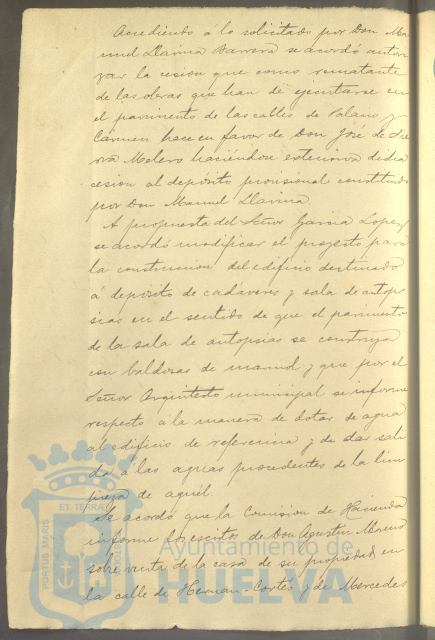 Accediendo á lo solicitado por Don Ma
nuel Llavina Barrera se acordó autori
zar la cesion que como rematante
de las obras que han de ejecutarse en
el pavimento de las calles de Palacio y
Carmen hace en favor de Don José de Sie
rra Molero haciéndose extensiva dicha
cesion al depósito provisional constituido
por Don Manuel Llavina.
A propuesta del Señor Garcia Lopez
se acordó modificar el proyecto para
la construccion del edificio destinado
á depósito de cadáveres y sala de autop
sias en el sentido de que el pavimento
de la sala de autopsias se construya
con baldosas de marmol y que por el
Señor Arquitecto municipal se informe
respecto á la manera de dotar de agua
al edificio de referencia y de dar sali
da á las aguas procedentes de la lim
pieza de aquél.
Se acordó que la Comision de Hacienda
informe el escrito de Don Agustin Moreno
sobre venta de la casa de su propiedad en
la calle de Hernan-Cortés y de Mercedes
PORTUS MARIS
ET TERRAE
CUSTODIA
Ayuntamiento de
HUELVA